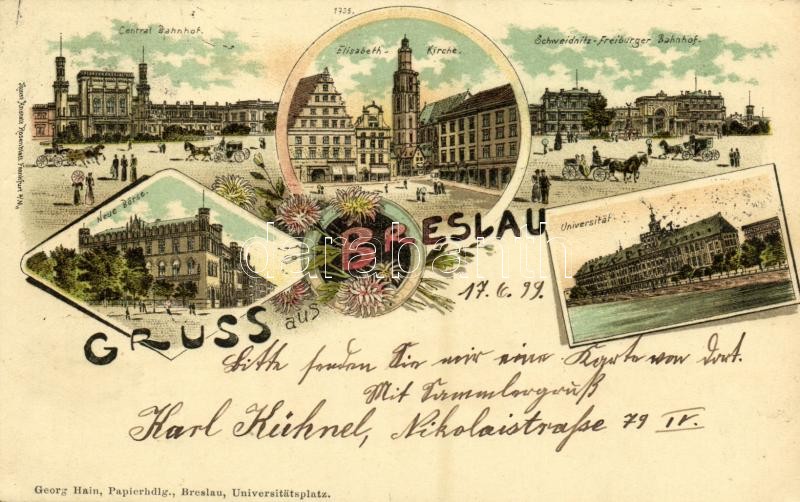 1735.
Central Bahnhof.
Elisabeth- Kirche.
Schweidnitz-Freiburger Bahnhof.
Neue Börse.
Universität.
GRUSS aus BRESLAU
darabanth.com
17. 6. 99.
Bitte senden Sie mir eine Karte von dort.
Mit Sammlergruß
Karl Kühnel, Nikolaistraße 79 IV.
Georg Hain, Papierhdlg., Breslau, Universitätsplatz.